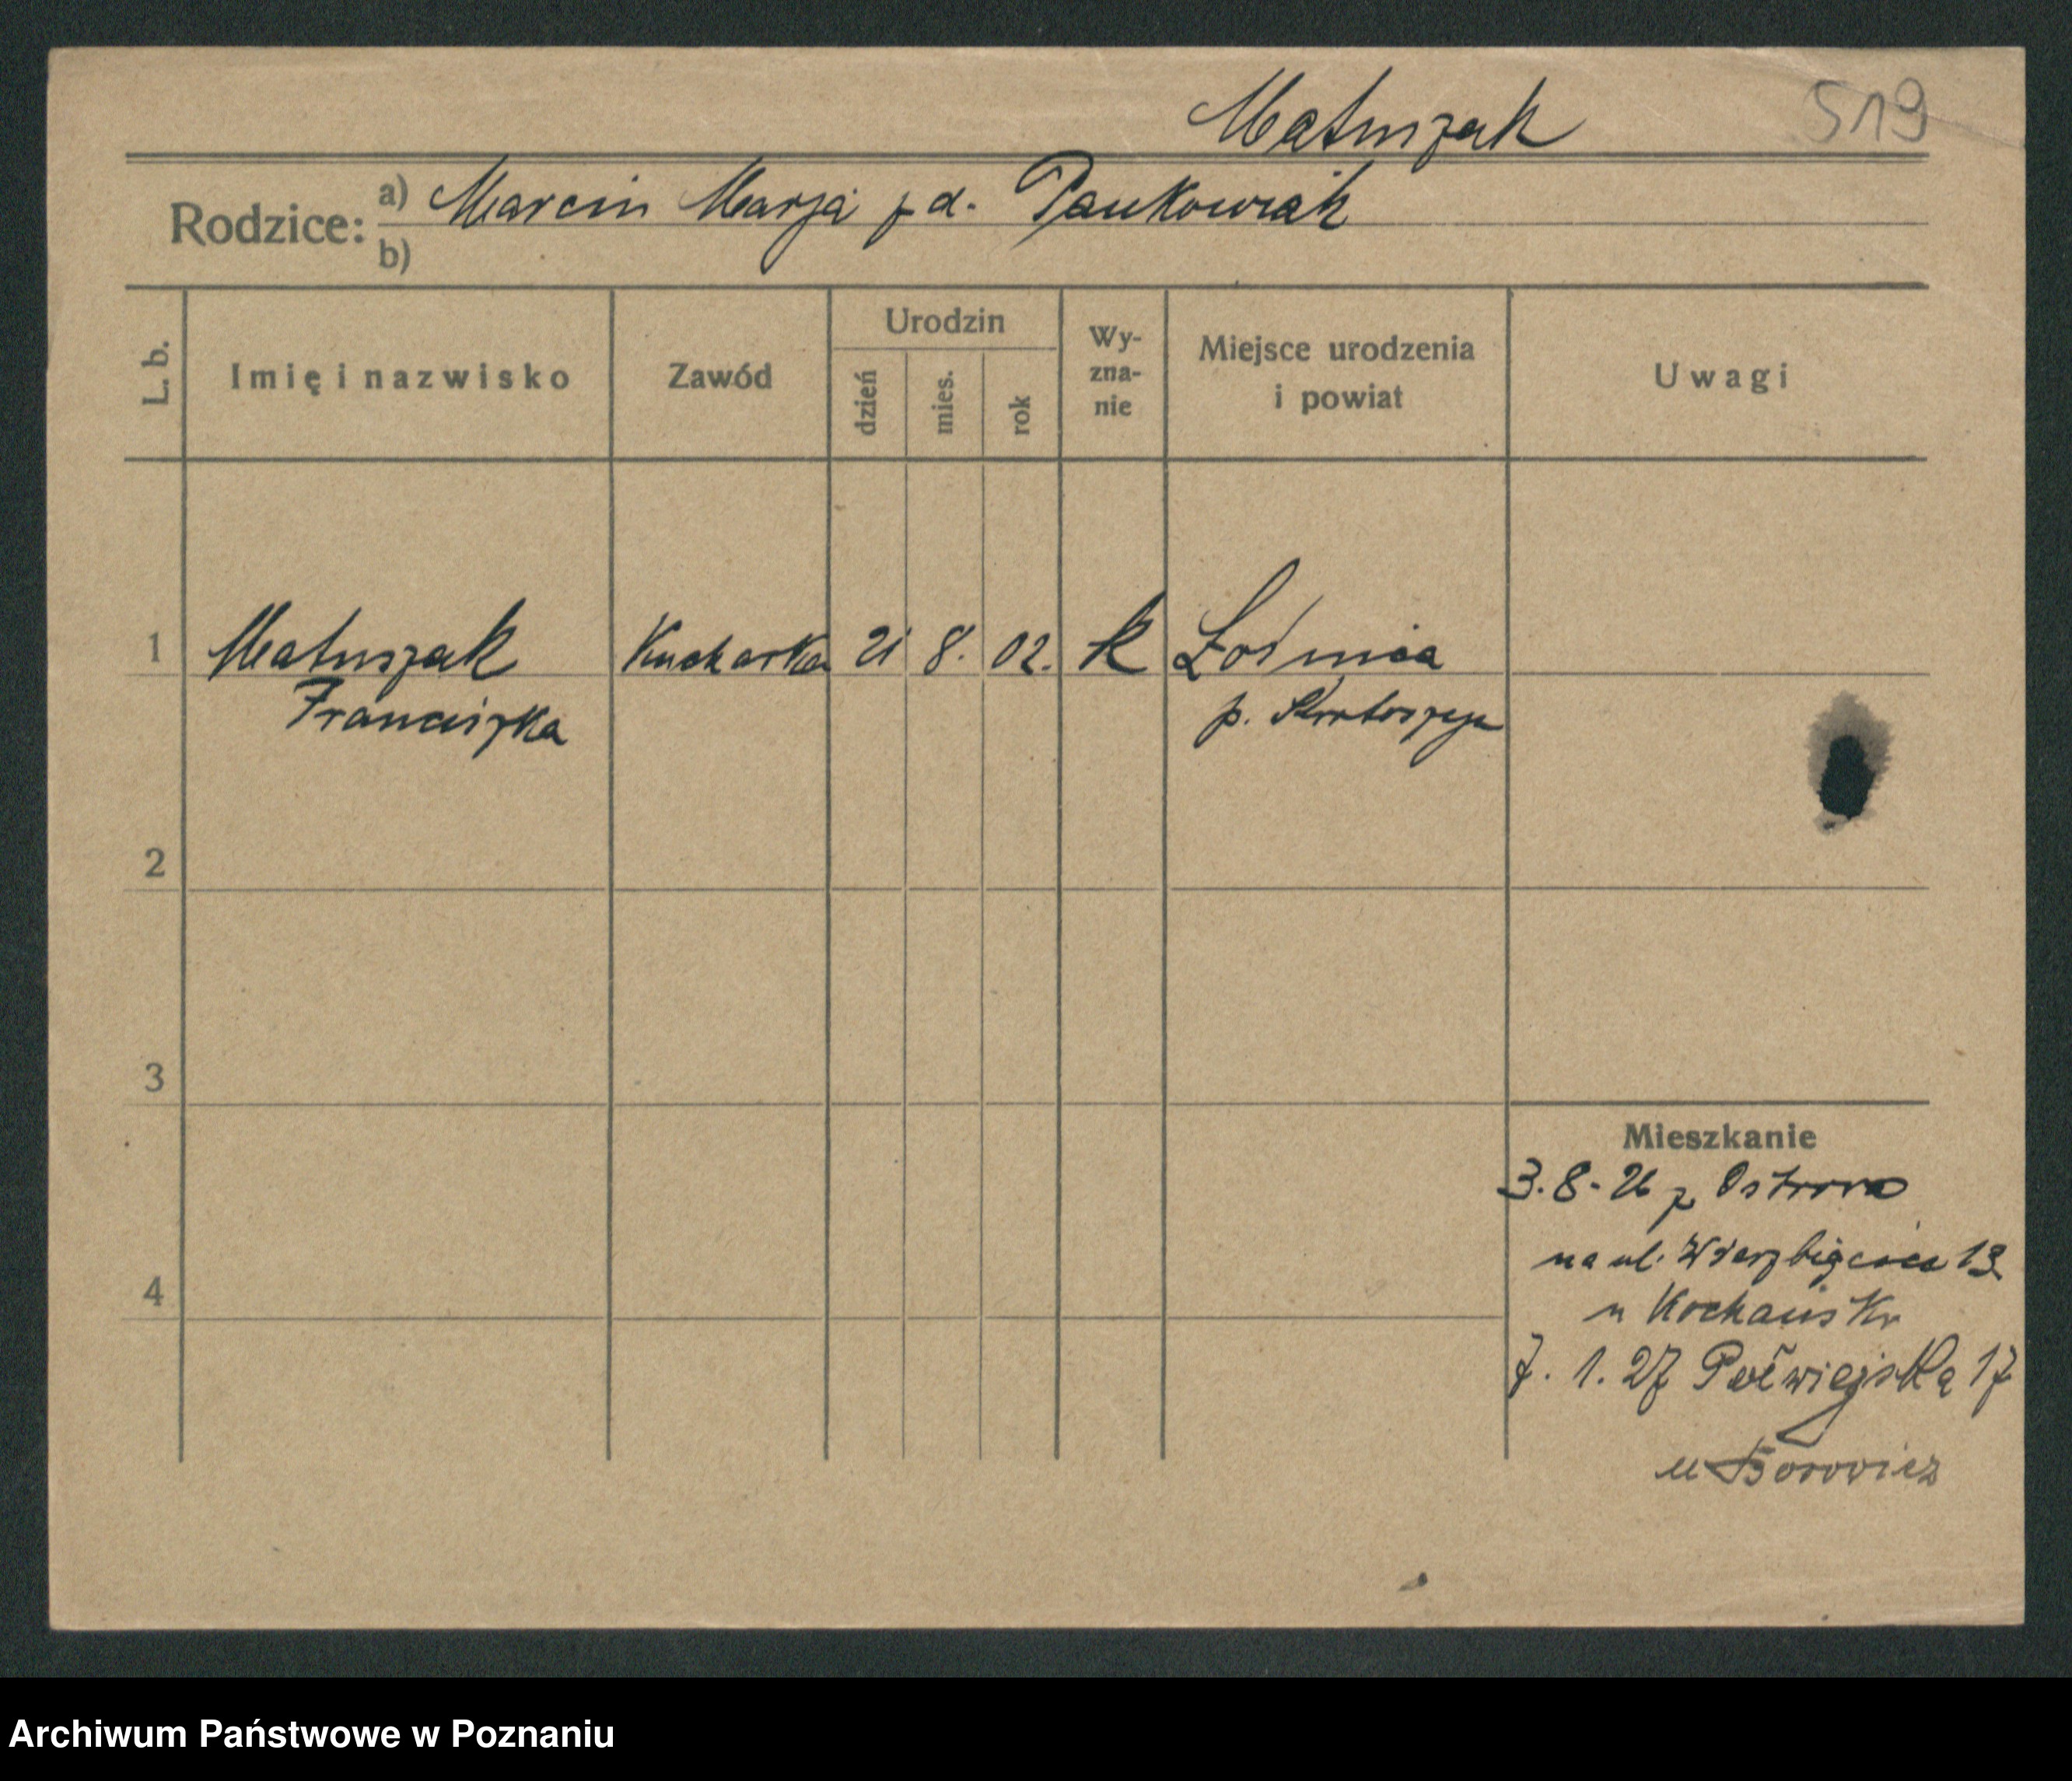 Matuszak
519
Rodzice: a) Marcin Marja z d. Pankowiak
b)
L. b.
Imię i nazwisko
Zawód
Urodzin
dzień
mies.
rok
Wy-
zna-
nie
Miejsce urodzenia
i powiat
Uwagi
1 Matuszak Kucharka 21 8. 02. k
Franciszka p. Krotoszyn
2
3
4
Mieszkanie
3.8-26 z Ostrowa
na ul. Wierzbięcice 13
u Kochańsk
7. 1. 27 Półwiejska 17
u Borowicz
Archiwum Państwowe w Poznaniu